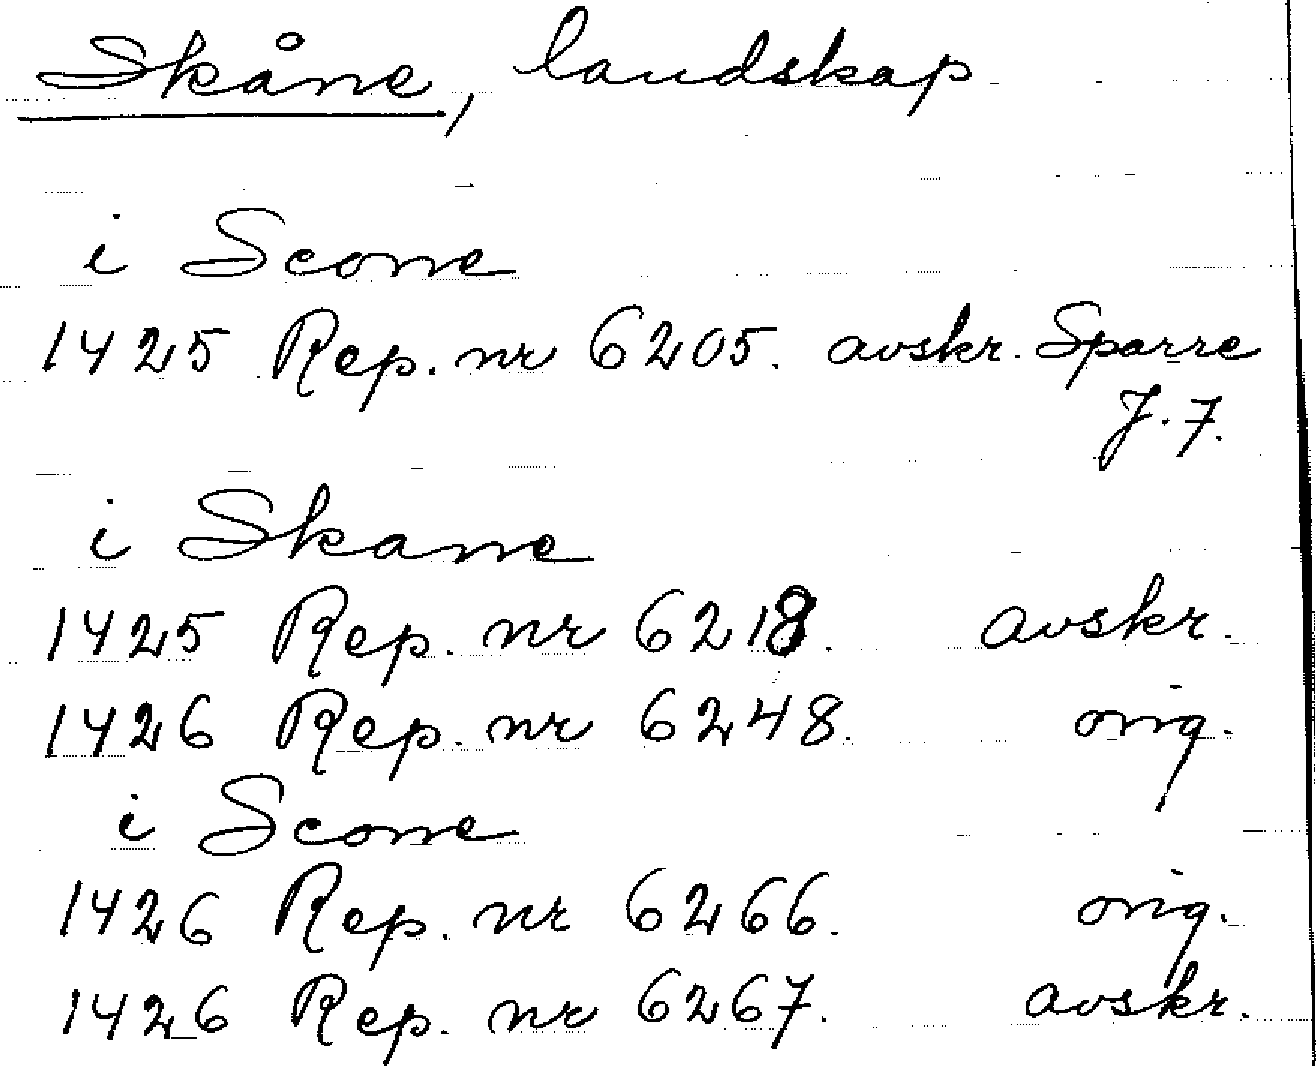 Skåne, landskap
i Scone
1425 Rep. nr 6205. avskr. Sparre
J. 7.
i Skane
1425 Rep. nr 6218. avskr.
1426 Rep. nr 6248. orig.
i Scone
1426 Rep. nr 6266. orig.
1426 Rep. nr 6267. avskr.